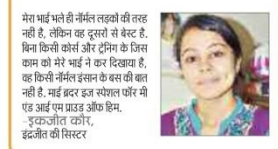 मेरा भाई भले ही नॉर्मल लड़कों की तरह
नही है, लेकिन वह दूसरों से बेस्ट है.
बिना किसी कोर्स और ट्रेनिंग के जिस
काम को मेरे भाई ने कर दिखाया है,
वह किसी नॉर्मल इंसान के बस की बात
नही है. माई ब्रदर इज स्पेशल फॉर मी
एंड आई एम प्राउड ऑफ हिम.
-इकजीत कौर,
इंद्रजीत की सिस्टर